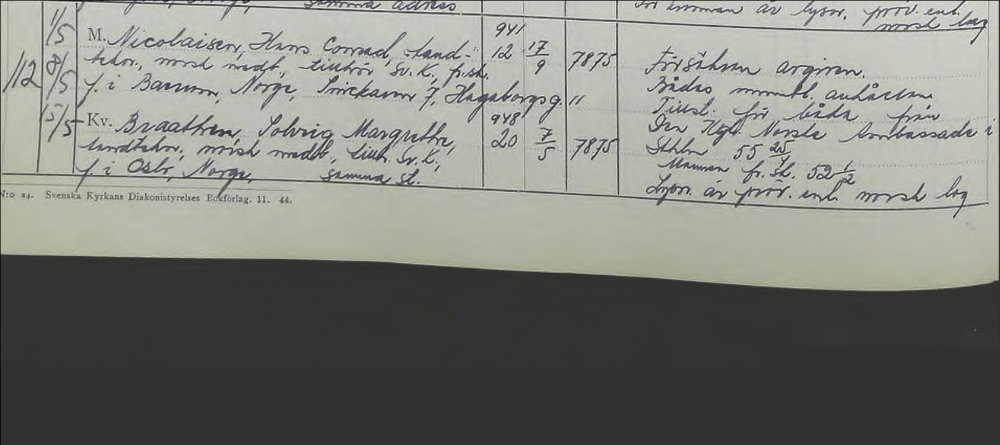 samma adress
av lysn. pröv. enl.
norsk lag
112
1/5
8/5
15/5
M. Nicolaisen, Hans Conrad, tand-
tekn., norsk medb., tillhör Sv. K., fr.sk.
f. i Bærum, Norge, 7, Hagaborgsg. 11
941
12 17/9 7875
Kv. Braathen, Solveig Margrethe,
tandtekn., norsk medb., tillh. Sv. K.,
f. i Oslo, Norge, samma st.
948
20 7/5 7875
Försäkran avgiven.
Bådas muntl. anhållan
Tillst. för båda från
Den Kgl. Norske Ambassade i
Sthlm 55 25/4
Mannen fr. sk. 52 1/12
Lysn. är pröv. enl. norsk lag
N:o 24. Svenska Kyrkans Diakonistyrelses Bokförlag. 11. 44.